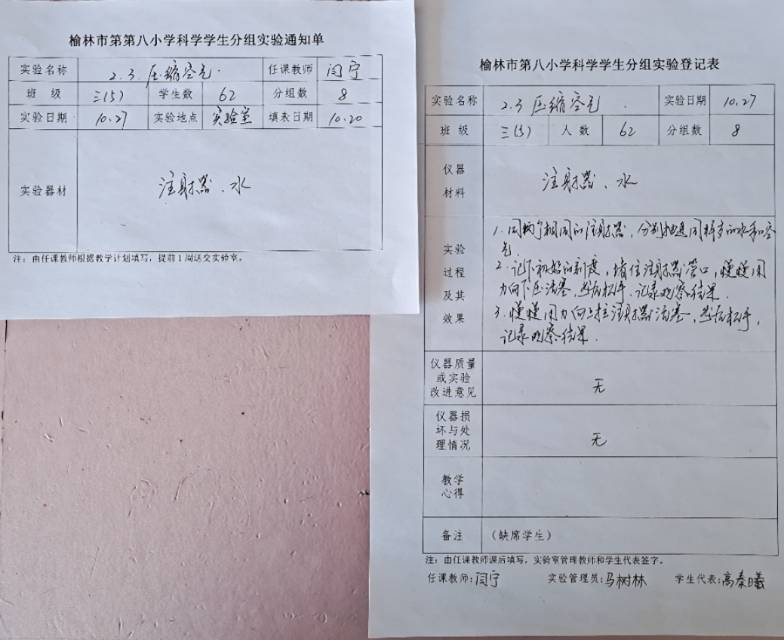 榆林市第第八小学科学学生分组实验通知单
实验名称 2.3 压缩空气. 任课教师 闫宁
班 级 三(5) 学生数 62 分组数 8
实验日期 10.27 实验地点 实验室 填表日期 10.20
实验器材 注射器、水
注：由任课教师根据教学计划填写，提前1周送交实验室。
榆林市第八小学科学学生分组实验登记表
实验名称 2.3 压缩空气 . 实验日期 10.27
班 级 三(5) 人 数 62 分组数 8
仪器
材料
注射器、水
实验
过程
及其
效果
1.用两个相同的注射器，分别抽进同样多的水和空
气.
2.记下初始的刻度，堵住注射器管口，慢慢用
力向下压活塞，然后松手.记录观察结果.
3.慢慢用力向上拉注射器活塞，然后松手，
记录观察结果.
仪器质量
或实验
改进意见
无
仪器损
坏与处
理情况
无
教学
心得
备注 （缺席学生）
注：由任课教师课后填写，实验室管理教师和学生代表签字。
任课教师：闫宁 实验管理员：马树林 学生代表：高秦曦